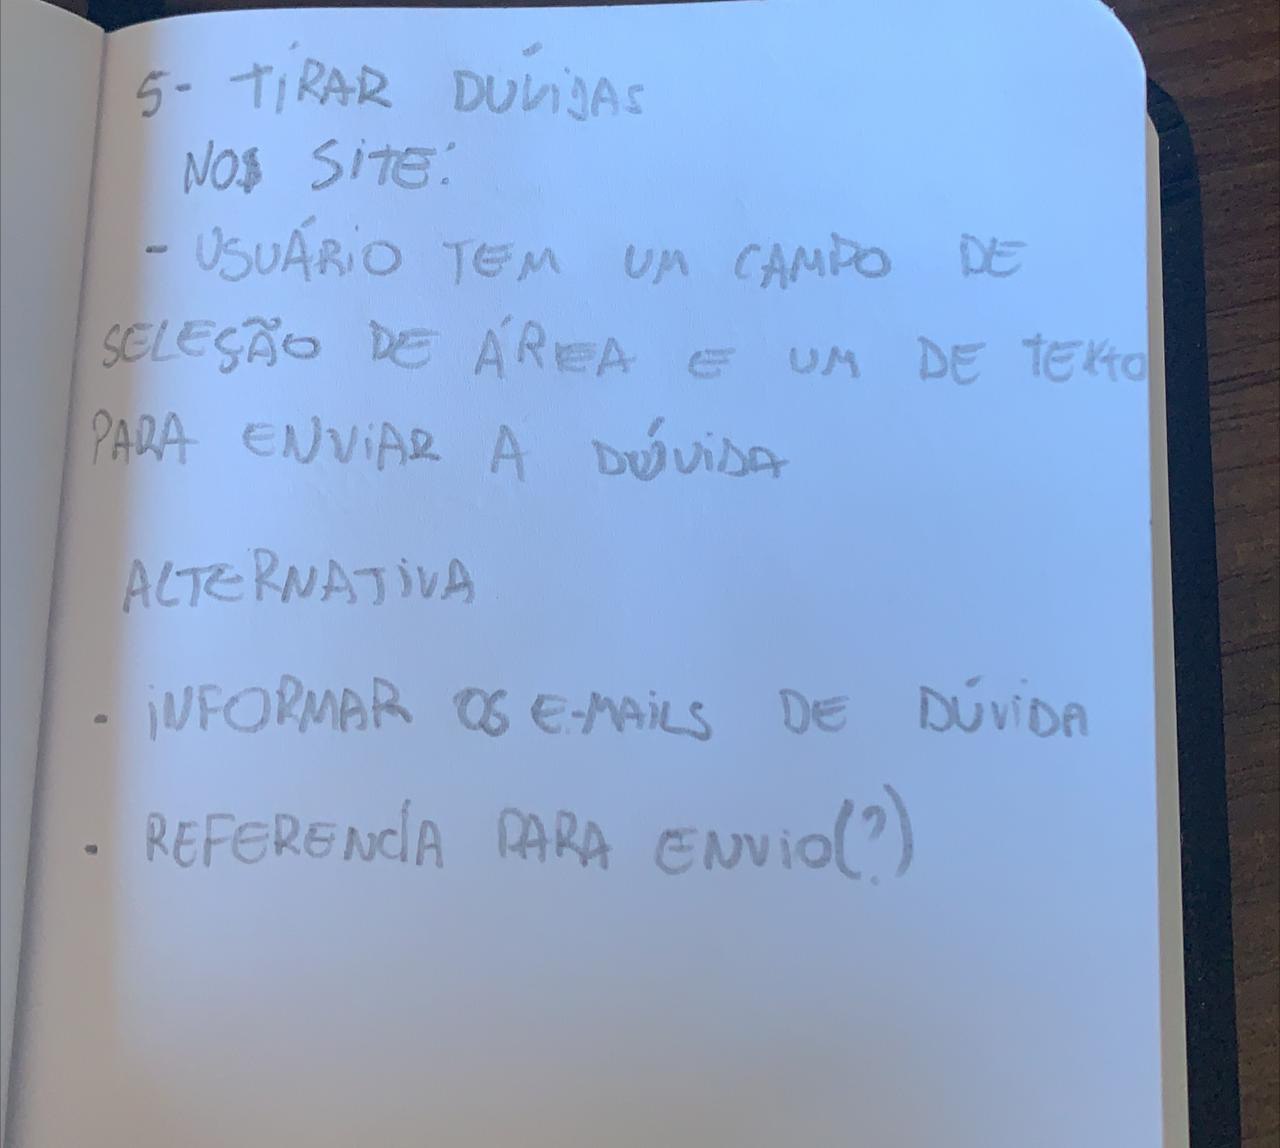 5- TIRAR DÚVIDAS
NO SITE:
- USUÁRIO TEM UM CAMPO DE
SELEÇÃO DE ÁREA E UM DE TEXTO
PARA ENVIAR A DÚVIDA
ALTERNATIVA
. INFORMAR OS E-MAILS DE DÚVIDA
. REFERENCÍA PARA ENVIO(?)